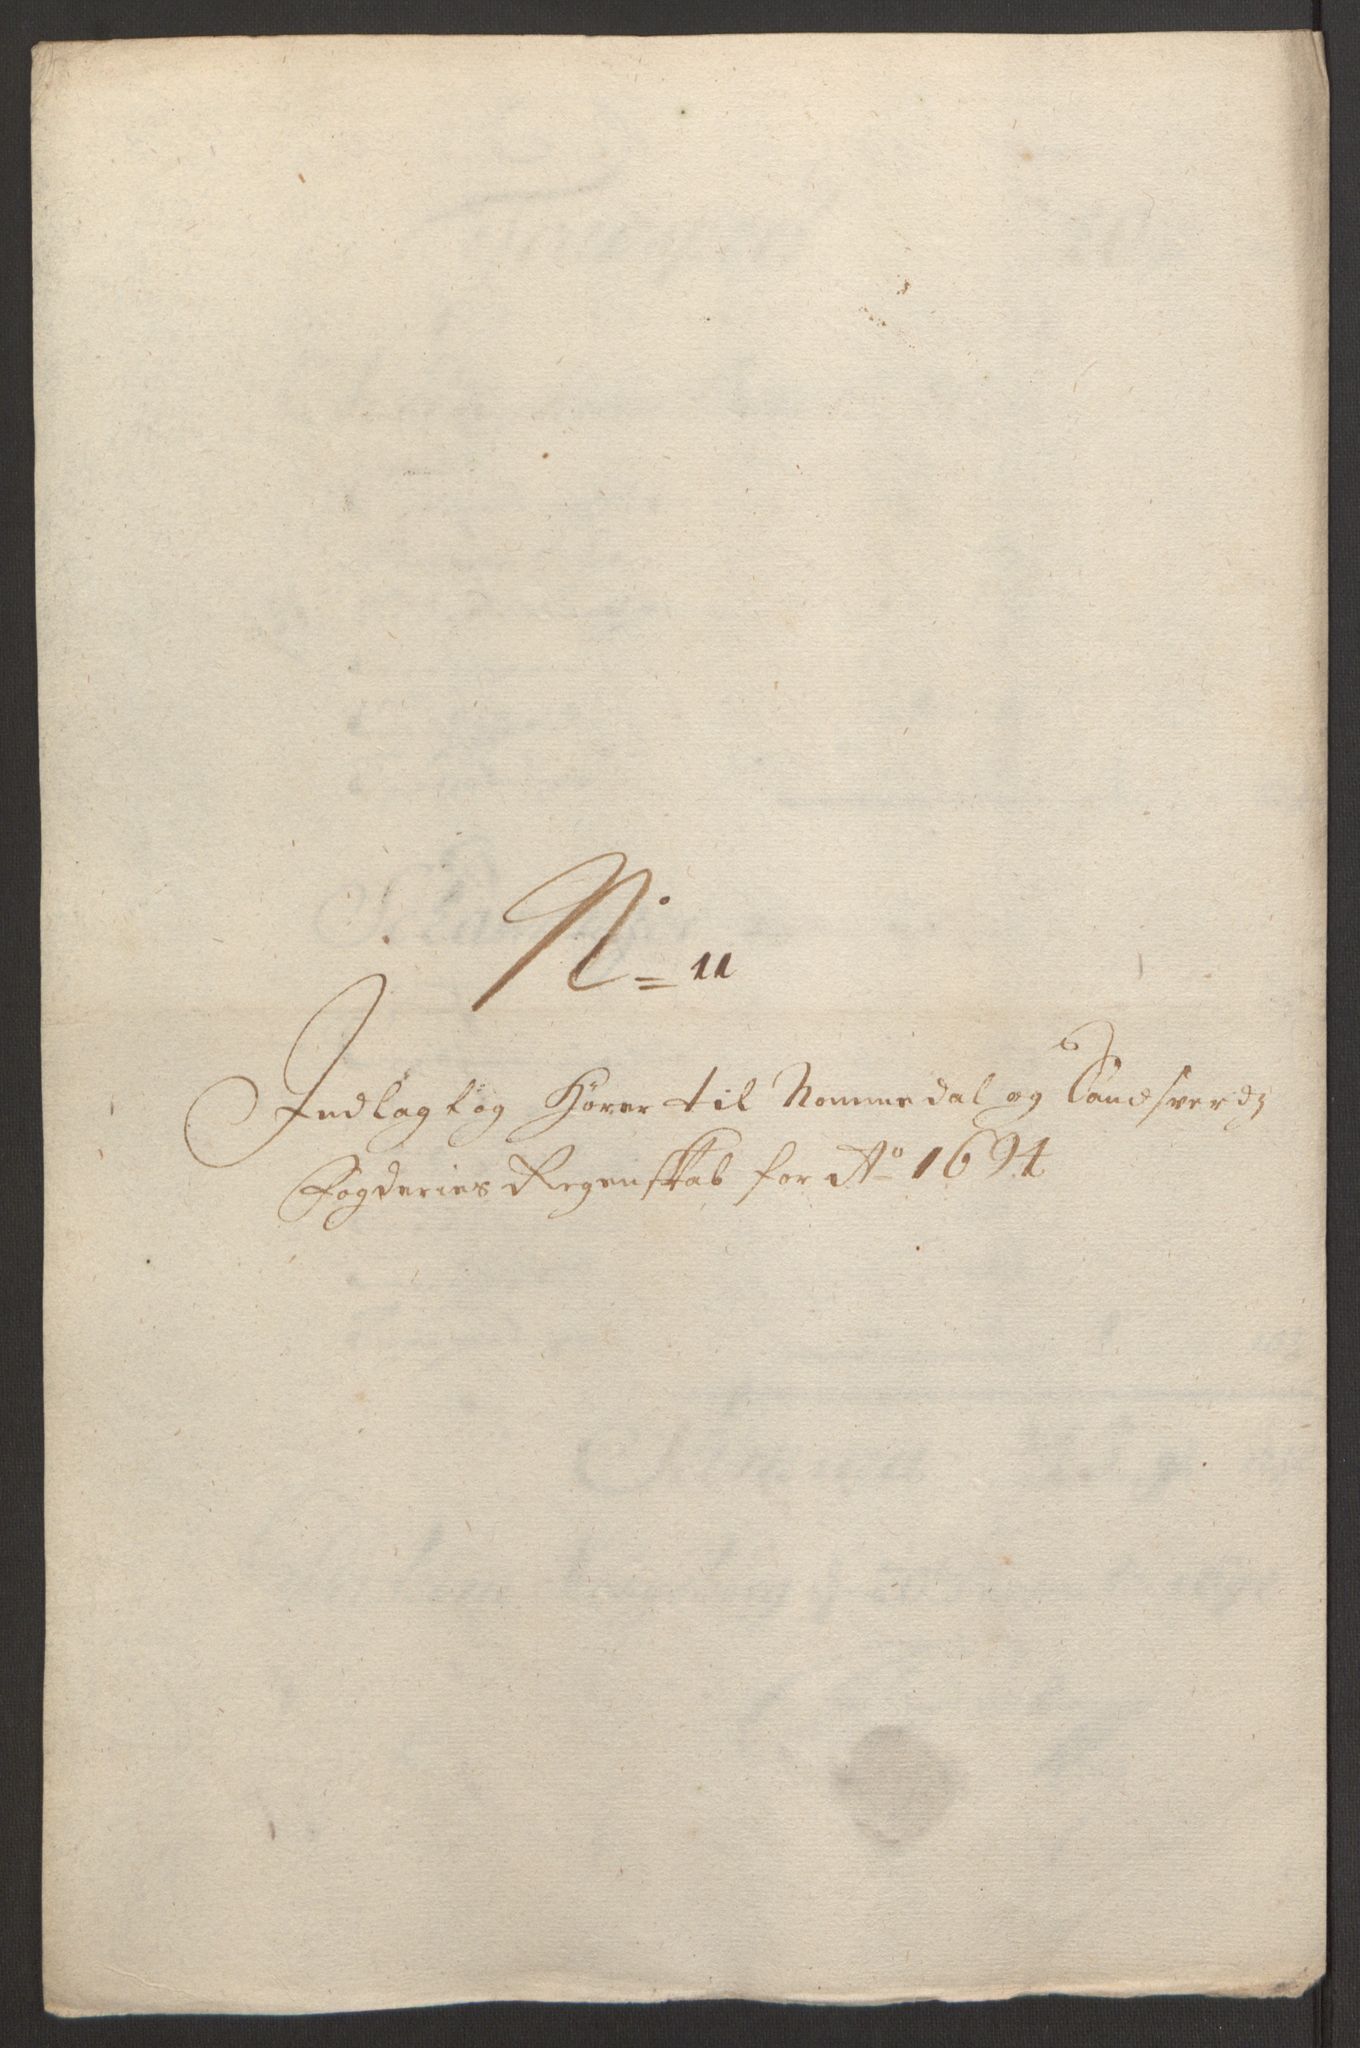 No = 11
Indlagt og Hører til Nommedal og Sandsverdz
Fogderies Regenskab for Ao 1694